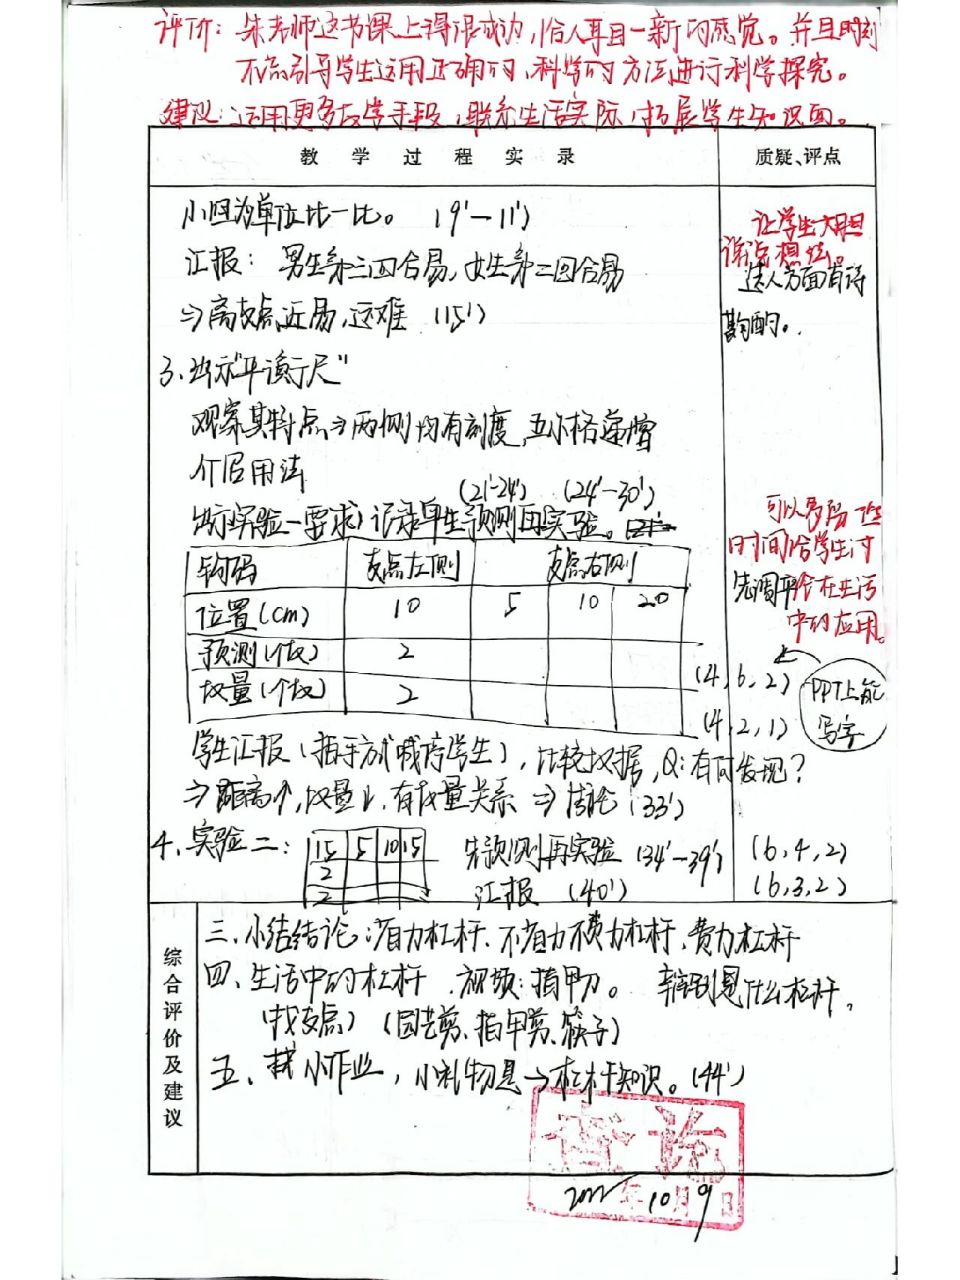 评价：朱老师这节课上得很成功，给人耳目一新的感觉。并且时刻
不忘引导学生运用正确的，科学的方法进行科学探究。
建议：运用更多教学手段，联系生活实际，拓展学生知识面。
教 学 过 程 实 录
质疑、评点
小组为单位比一比。（9'—11'）
汇报：男生第三四合易，女生第二四合易
⇒离支点近易，远难（15'）
让学生大胆
说出想法。
选人方面有待
斟酌。
3、出示"平衡尺"
观察其特点⇒两侧均有刻度，五小格递增
介绍用法
（21'-24'）（24'—30'）
出示实验一（要求）记录单先预测再实验。
可以多留一些
时间给学生讨
先调平
在生活
中的应用。
钩码 支点左侧 支点右侧
位置(cm) 10 5 10 20
预测(个数) 2
数量(个数) 2
(4,6,2)
(4,2,1)
PPT上能
写字
学生汇报（指手方式喊停学生），比较数据，Q：有何发现？
⇒距离↑，数量↓，有数量关系⇒结论（33'）
4、实验二：
15 5 10 15
2
2
先预测再实验（34'—39'）
汇报（40'）
(6,4,2)
(6,3,2)
综合评价及建议
三、小结结论：省力杠杆、不省力不费力杠杆、费力杠杆
四、生活中的杠杆．视频：指甲刀。辨别是什么杠杆。
（找支点）（园艺剪、指甲剪、筷子）
五、小作业，小礼物是→杠杆知识。（44'）
查讫
2022年10月9日